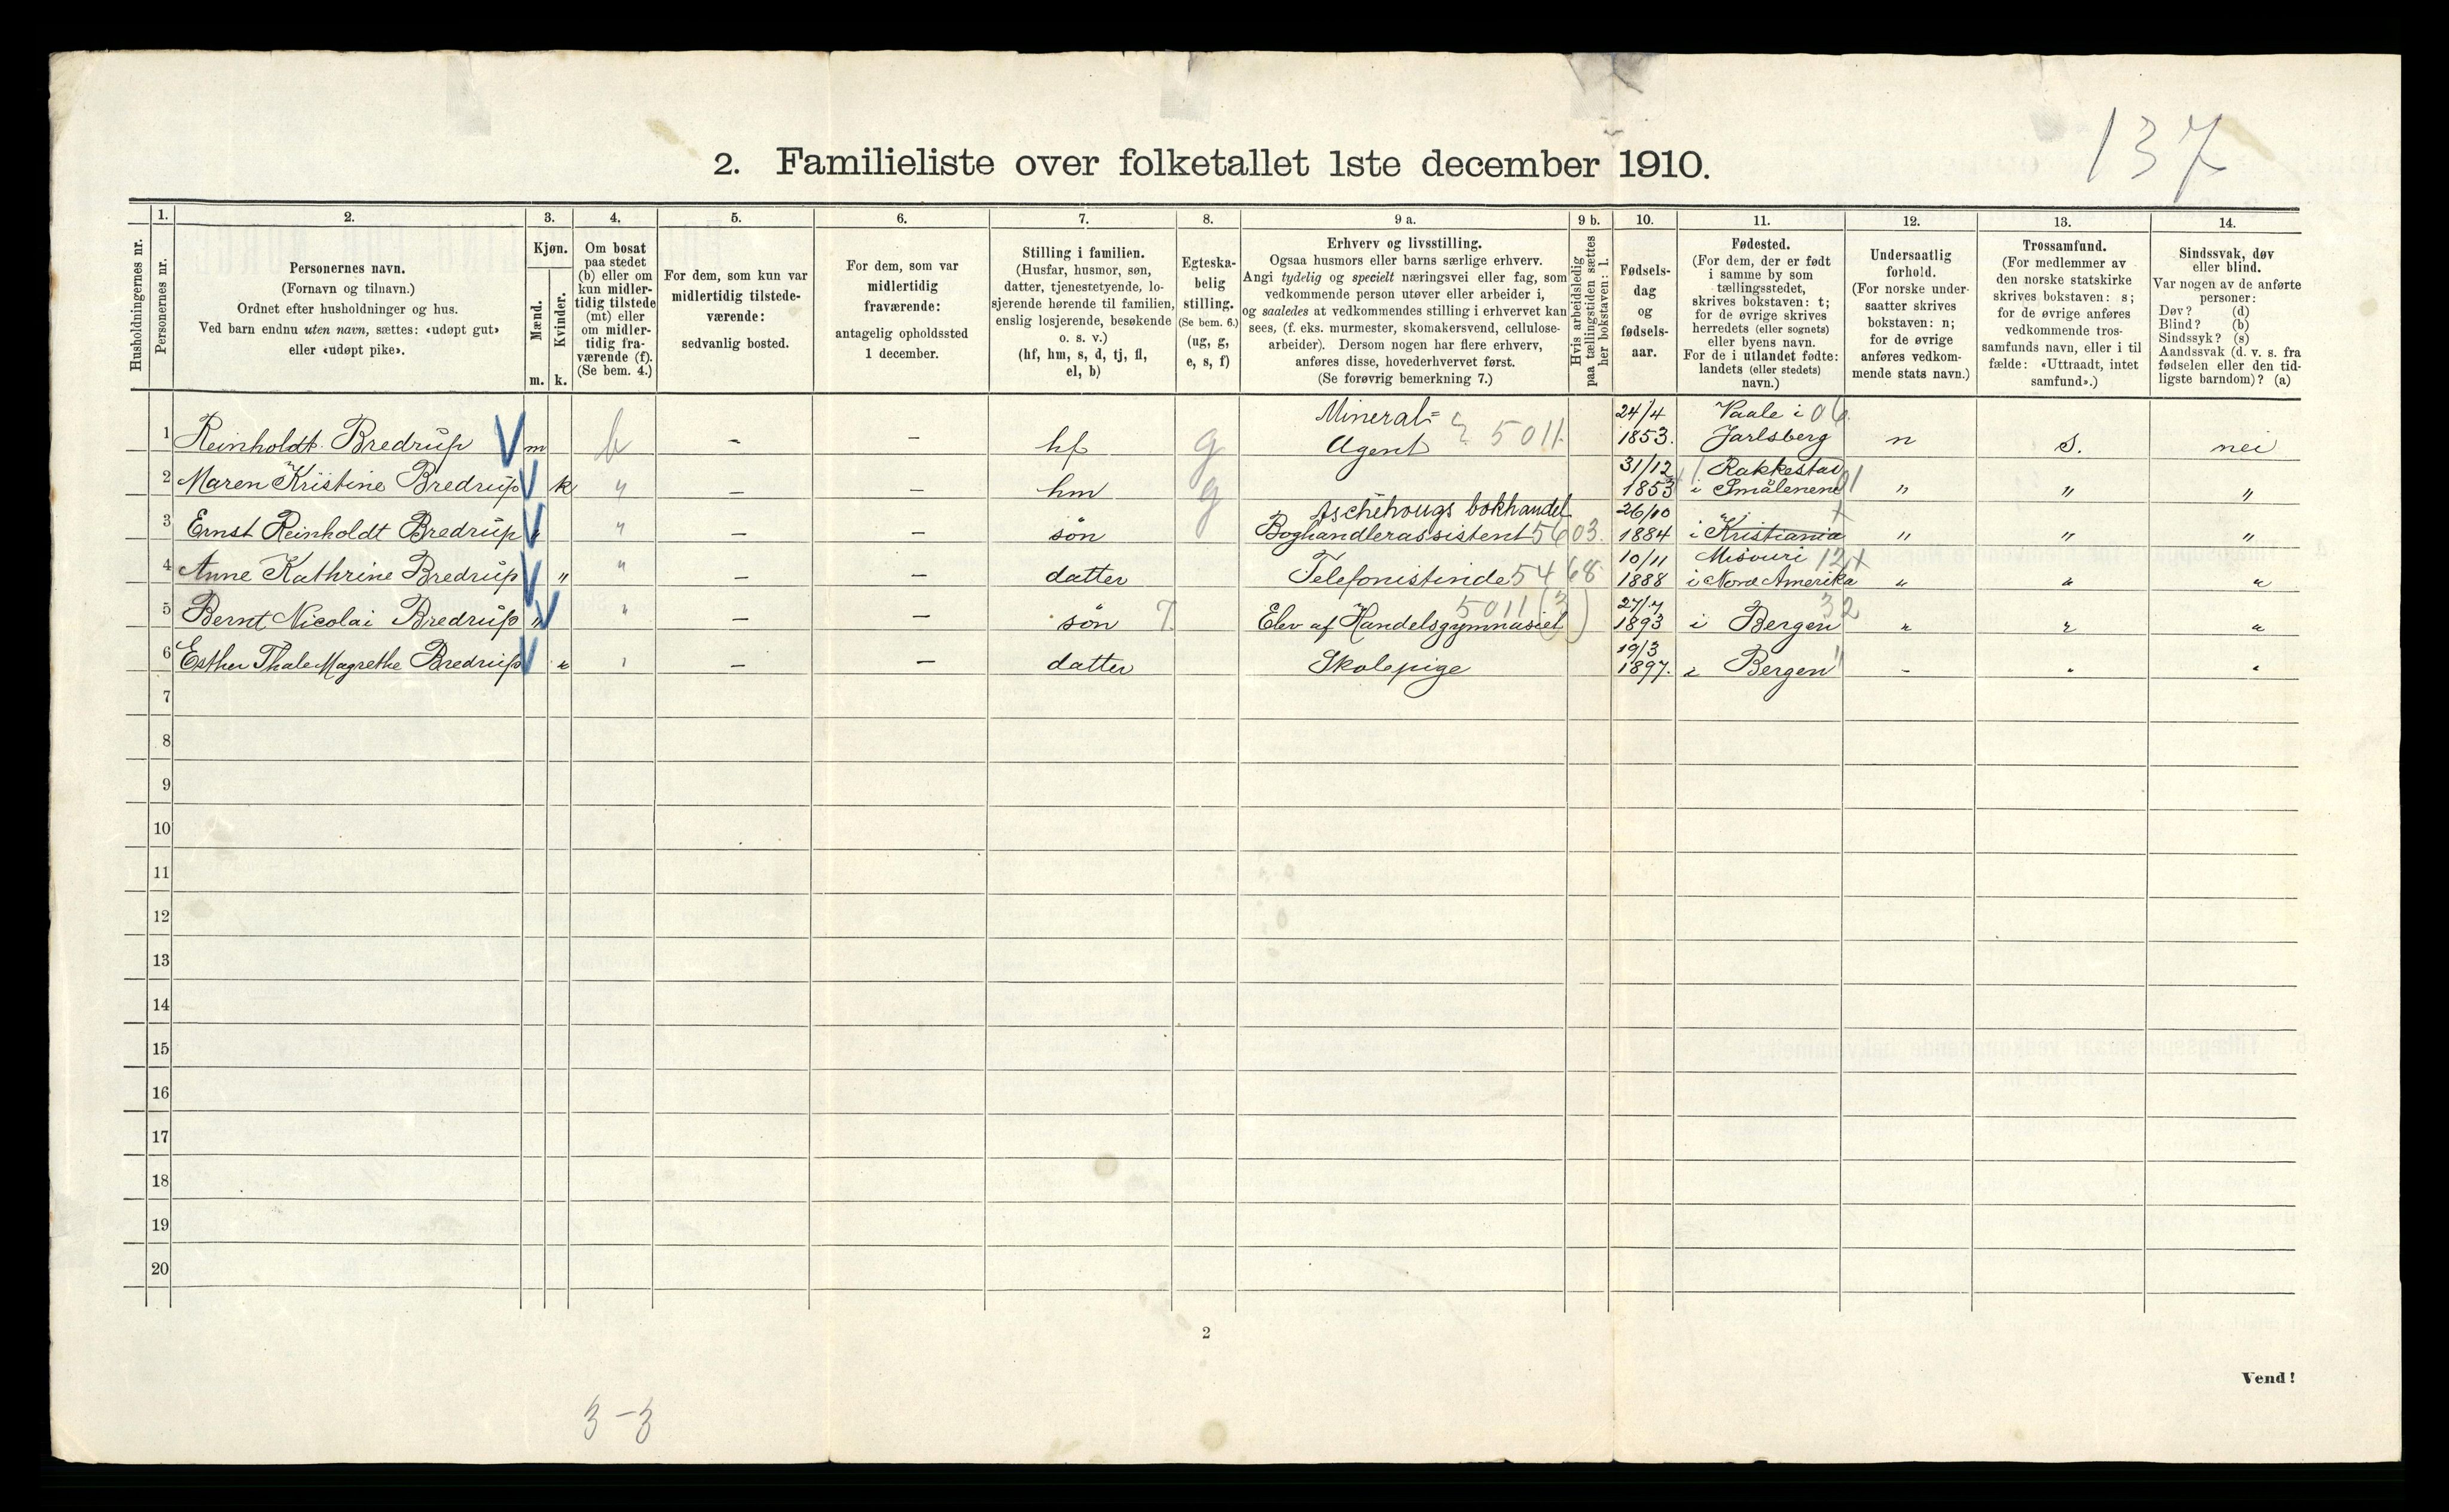 137
2. Familieliste over folketallet 1ste december 1910.
Husholdningernes nr.
1.
Personernes nr.
2.
Personernes navn.
(Fornavn og tilnavn.)
Ordnet efter husholdninger og hus.
Ved barn endnu uten navn, sættes: «udøpt gut»
eller «udøpt pike».
3.
Kjøn.
Mænd.
m.
Kvinder.
k.
4.
Om bosat
paa stedet
(b) eller om
kun midler-
tidig tilstede
(mt) eller
om midler-
tidig fra-
værende (f).
(Se bem. 4.)
5.
For dem, som kun var
midlertidig tilstede-
værende:
sedvanlig bosted.
6.
For dem, som var
midlertidig
fraværende:
antagelig opholdssted
1 december.
7.
Stilling i familien.
(Husfar, husmor, søn,
datter, tjenestetyende, lo-
sjerende hørende til familien,
enslig losjerende, besøkende
o. s. v.)
(hf, hm, s, d, tj, fl,
el, b)
8.
Egteska-
belig
stilling.
(Se bem. 6.)
(ug, g,
e, s, f)
9 a.
Erhverv og livsstilling.
Ogsaa husmors eller barns særlige erhverv.
Angi tydelig og specielt næringsvei eller fag, som
vedkommende person utøver eller arbeider i,
og saaledes at vedkommendes stilling i erhvervet kan
sees, (f. eks. murmester, skomakersvend, cellulose-
arbeider). Dersom nogen har flere erhverv,
anføres disse, hovederhvervet først.
(Se forøvrig bemerkning 7.)
9 b.
Hvis arbeidsledig
paa tællingstiden sættes
her bokstaven: l.
10.
Fødsels-
dag
og
fødsels-
aar.
11.
Fødested.
(For dem, der er født
i samme by som
tællingsstedet,
skrives bokstaven: t;
for de øvrige skrives
herredets (eller sognets)
eller byens navn.
For de i utlandet fødte:
landets (eller stedets)
navn.)
12.
Undersaatlig
forhold.
(For norske under-
saatter skrives
bokstaven: n;
for de øvrige
anføres vedkom-
mende stats navn.)
13.
Trossamfund.
(For medlemmer av
den norske statskirke
skrives bokstaven: s;
for de øvrige anføres
vedkommende tros-
samfunds navn, eller i til
fælde: «Uttraadt, intet
samfund».)
14.
Sindssvak, døv
eller blind.
Var nogen av de anførte
personer:
Døv? (d)
Blind? (b)
Sindssyk? (s)
Aandssvak (d. v. s. fra
fødselen eller den tid-
ligste barndom)? (a)
1 Reinholdt Bredrup V m b - - hf g Mineral= Agent 5011. 24/4 1853. Vaale i Jarlsberg 06. n S. nei
2 Maren Kristine Bredrup V k " - - hm g 31/12 1853 Rakkestad i Smålenene 01 " " "
3 Ernst Reinholdt Bredrup V " " - - søn Aschehougs bokhandel Boghandlerassistent 5603. 26/10 1884 i Kristiania " " "
4 Anne Kathrine Bredrup V " " - - datter Telefonistinde 5468 10/11 1888 Misouri i Nord Amerika 12 + " " "
5 Bernt Nicolai Bredrup V " " - - søn 7. Elev af Handelsgymnasiet 5011 (3) 27/7 1893 i Bergen 32 " " "
6 Esther Thale Magrethe Bredrup V " " - - datter Skolepige 19/3 1897. i Bergen " - " "
7
8
9
10
11
12
13
14
15
16
17
18
19
20
2
Vend!
3-3